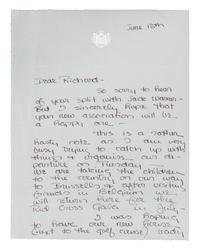 June 18th
Dear Richard -
So sorry to hear
of your split with Jack Warner -
But I sincerely hope that
your new association will be
a happy one -
This is a rather
hasty note as I am very
busy trying to catch up with
things & organise our de-
parture on Tuesday
We are taking the children
to the country on our way
to Brussells & after visiting
friends in Belgium we
will return here for the
Red Cross Gala in July
I was hoping
to have our new house
(next to the golf course) ready